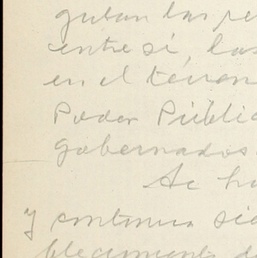 gulan las re
entre sí, las
en el terren
Poder Públic
gobernados.
Se ha
y continúa sie
blecimiento d